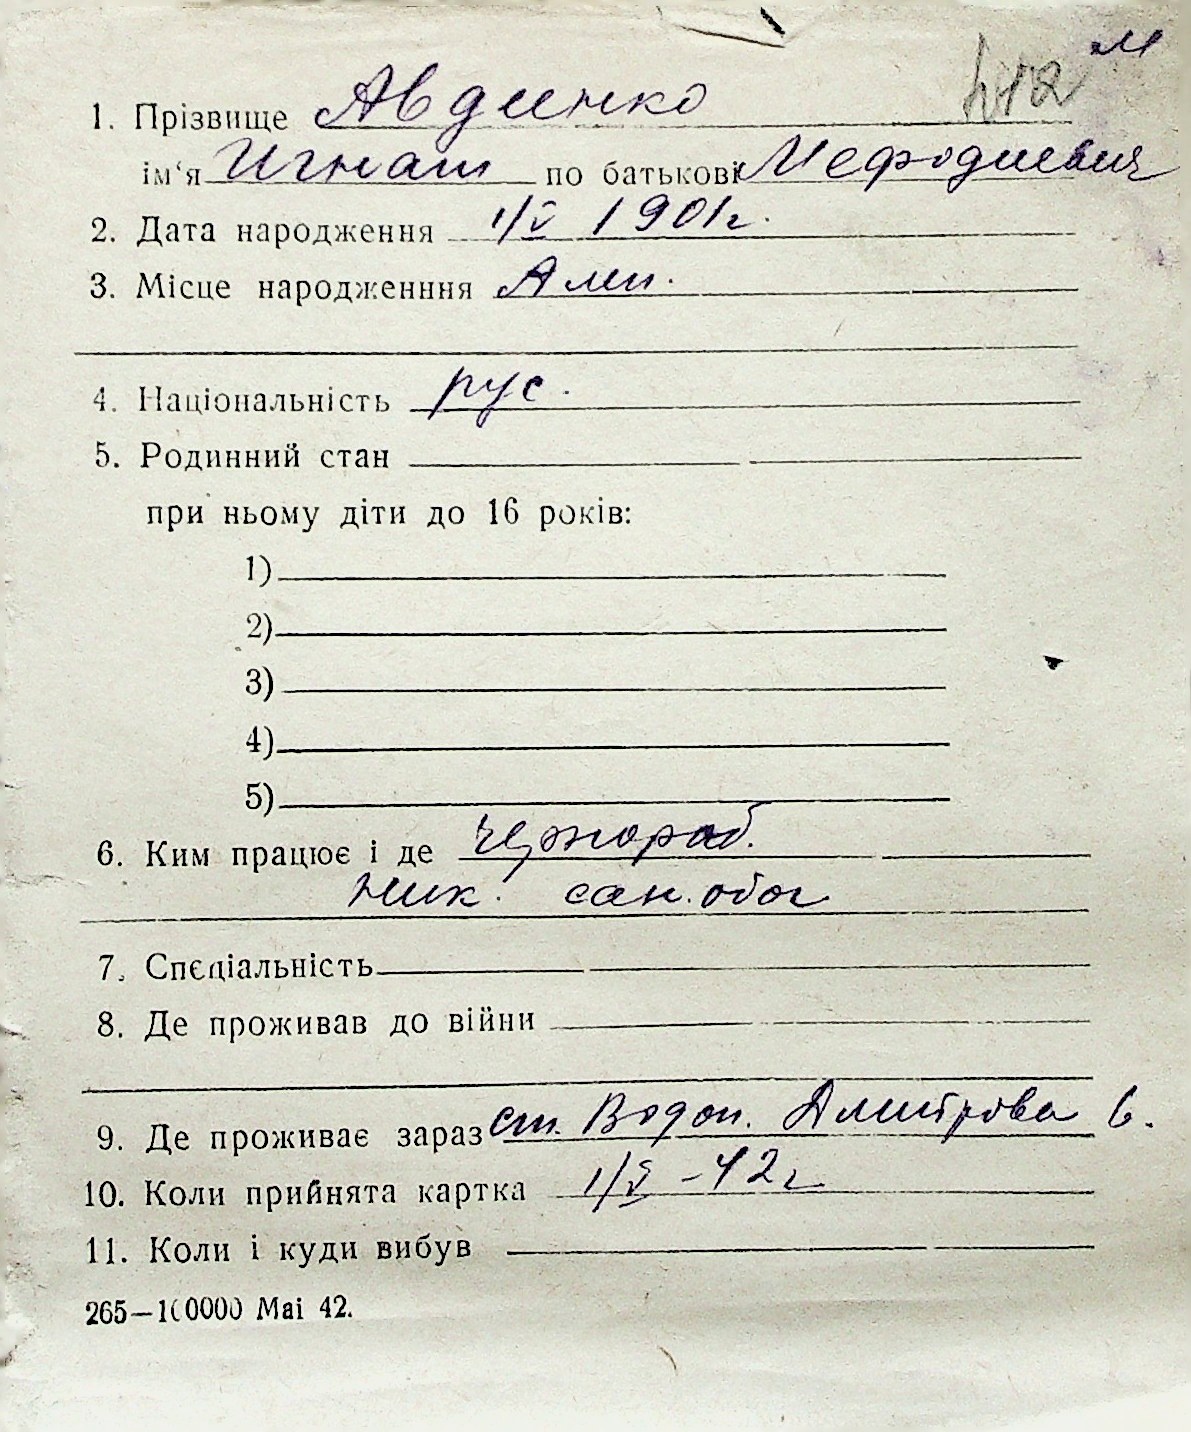 м
N12
1. Прізвище Авдиенко
ім‘я Игнат по батькові Мефодиевич
2. Дата народження 1/V 1901г.
3. Місце народженння
4. Національність рус.
5. Родинний стан
при ньому діти до 16 років:
1)
2)
3)
4)
5)
6. Ким працює і де чернораб.
Ник. сан. обоз
7. Спєціальність
8. Де проживав до війни
9. Де проживає зараз ст. Водоп. Дмитрова 6.
10. Коли прийнята картка 1/V -42г
11. Коли і куди вибув
265—100000 Mai 42.